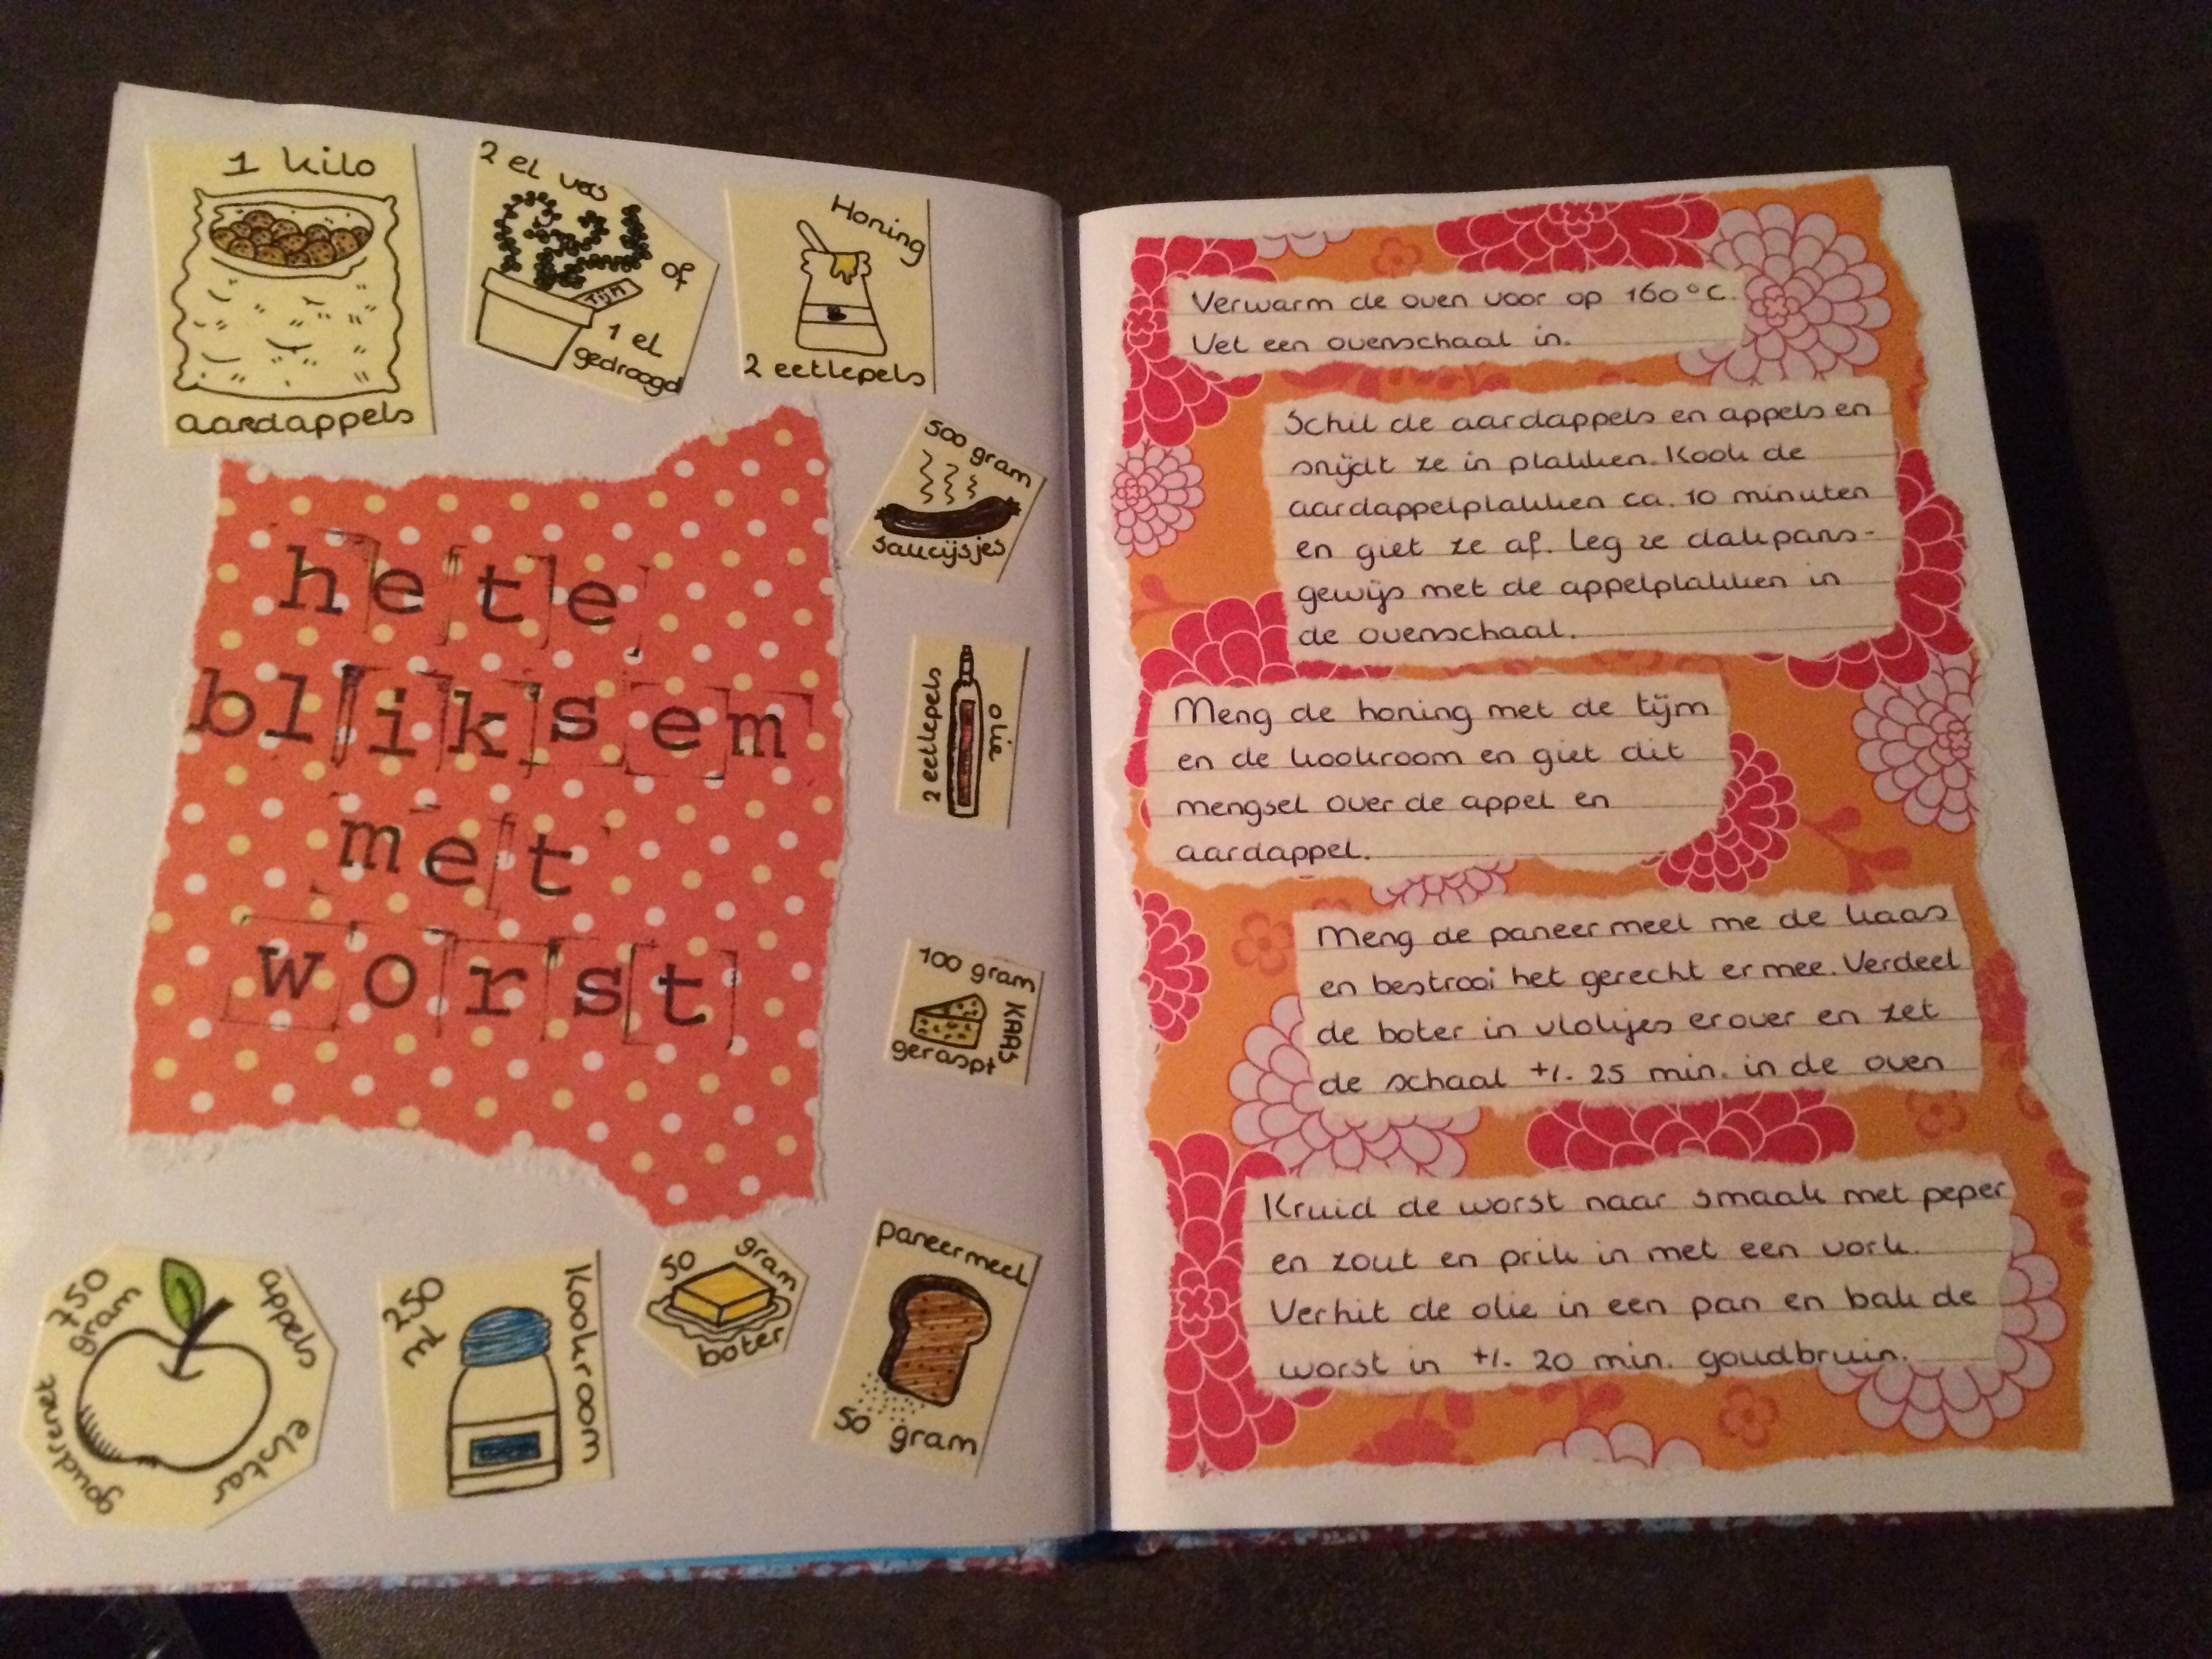 1 kilo
aardappels
2 el vers
Tijm
of
1 el
gedroogd
Honing
2 eetlepels
500 gram
saucijsjes
2 eetlepels
olie
100 gram
KAAS
geraspt
hete
bliksem
met
worst
750
gram
appels
elstar
goudrenet
250
ml
Kookroom
50
gram
boter
paneermeel
50 gram
Verwarm de oven voor op 160°C.
Vet een ovenschaal in.
Schil de aardappels en appels en
snijdt ze in plakken. Kook de
aardappelplakken ca. 10 minuten
en giet ze af. Leg ze dakpans-
gewijs met de appelplakken in
de ovenschaal.
Meng de honing met de tijm
en de kookroom en giet dit
mengsel over de appel en
aardappel.
Meng de paneermeel me de kaas
en bestrooi het gerecht ermee. Verdeel
de boter in vlokjes erover en zet
de schaal +/- 25 min. in de oven
Kruid de worst naar smaak met peper
en zout en prik in met een vork.
Verhit de olie in een pan en bak de
worst in +/- 20 min. goudbruin.